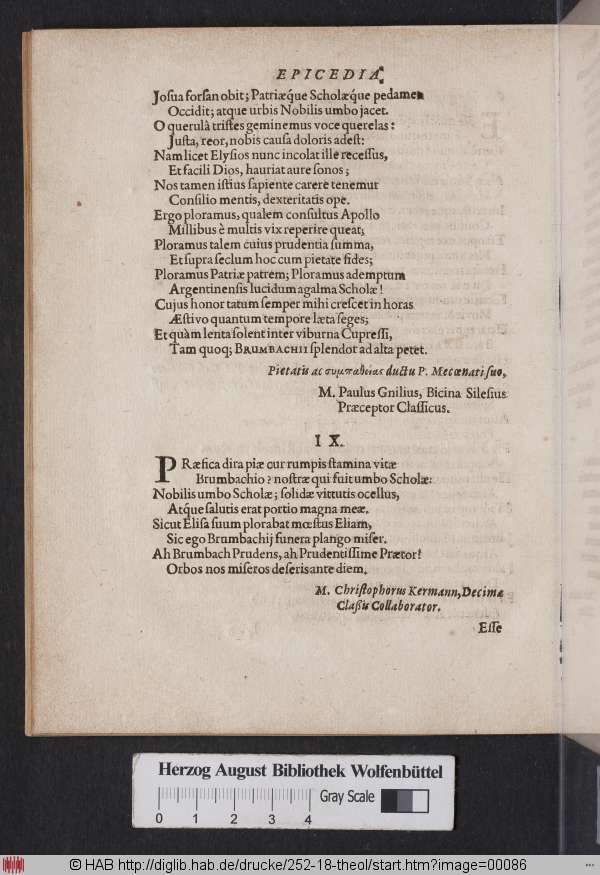 EPICEDIA.
Joſua forſan obit; Patriæq́ue Scholæq́ue pedamen
Occidit; atque urbis Nobilis umbo jacet.
O querulà triſtes geminemus voce querelas:
Juſta, reor, nobis cauſa doloris adeſt:
Nam licet Elyſios nunc incolat ille receſſus,
Et facili Dios, hauriat aure ſonos;
Nos tamen iſtius ſapiente carere tenemur
Conſilio mentis, dexteritatis ope.
Ergo ploramus, qualem conſultus Apollo
Millibus è multis vix reperire queat;
Ploramus talem cuius prudentia ſumma,
Et ſupra ſeclum hoc cum pietate fides;
Ploramus Patriæ patrem; Ploramus ademptum
Argentinenſis lucidum agalma Scholæ!
Cujus honor tatum ſemper mihi creſcet in horas
Æſtivo quantum tempore læta ſeges;
Et quàm lenta ſolent inter viburna Cupreſſi,
Tam quoq; BRUMBACHII ſplendot ad alta petet.
Pietatis ac συμπαθείας ductu P. Mecœnati ſuo,
M. Paulus Gnilius, Bicina Sileſius
Præceptor Claſſicus.
IX.
PRæfica dira piæ cur rumpis ſtamina vitæ
Brumbachio? noſtræ qui fuit umbo Scholæ:
Nobilis umbo Scholæ; ſolidæ virtutis ocellus,
Atq́ue ſalutis erat portio magna meæ.
Sicut Eliſa ſuum plorabat mœſtus Eliam,
Sic ego Brumbachij funera plango miſer.
Ah Brumbach Prudens, ah Prudentiſſime Prætor!
Orbos nos miſeros deſeris ante diem.
M. Chriſtophorus Kermann, Decimæ
Claßis Collaborator.
Eſſe
Herzog August Bibliothek Wolfenbüttel
0 1 2 3 4
Gray Scale
© HAB http://diglib.hab.de/drucke/252-18-theol/start.htm?image=00086